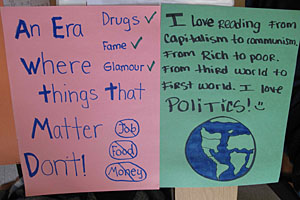 An Era
Where
Things That
Matter
Don't!
Drugs ✓
Fame ✓
Glamour ✓
Job
Food
Money
I love reading from
Capitalism to communism,
From Rich to poor.
From third world to
First world. I love
Politics!